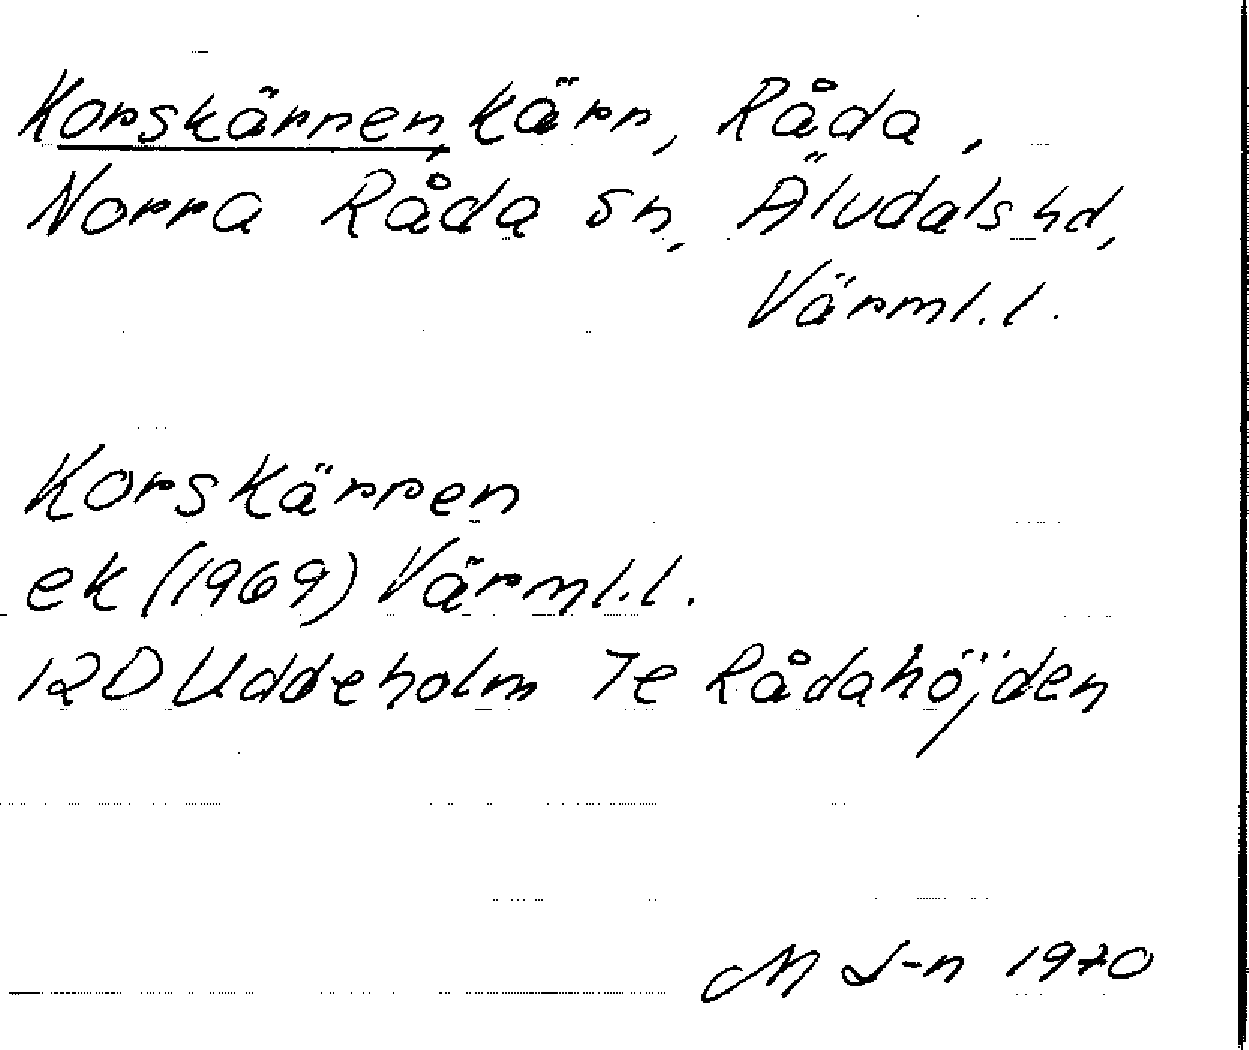 Korskärren, kärr, Råda,
Norra Råda sn, Älvdals hd,
Värml. l.
Korskärren
ek (1969) Värml. l.
12D Uddeholm 7e Rådahöjden
M J-n 1970